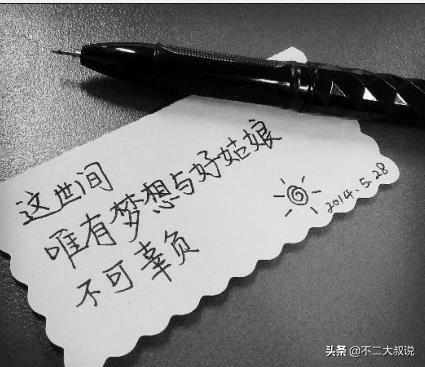 这世间
唯有梦想与好姑娘
不可辜负
2014.5.28
头条 @不二大叔说